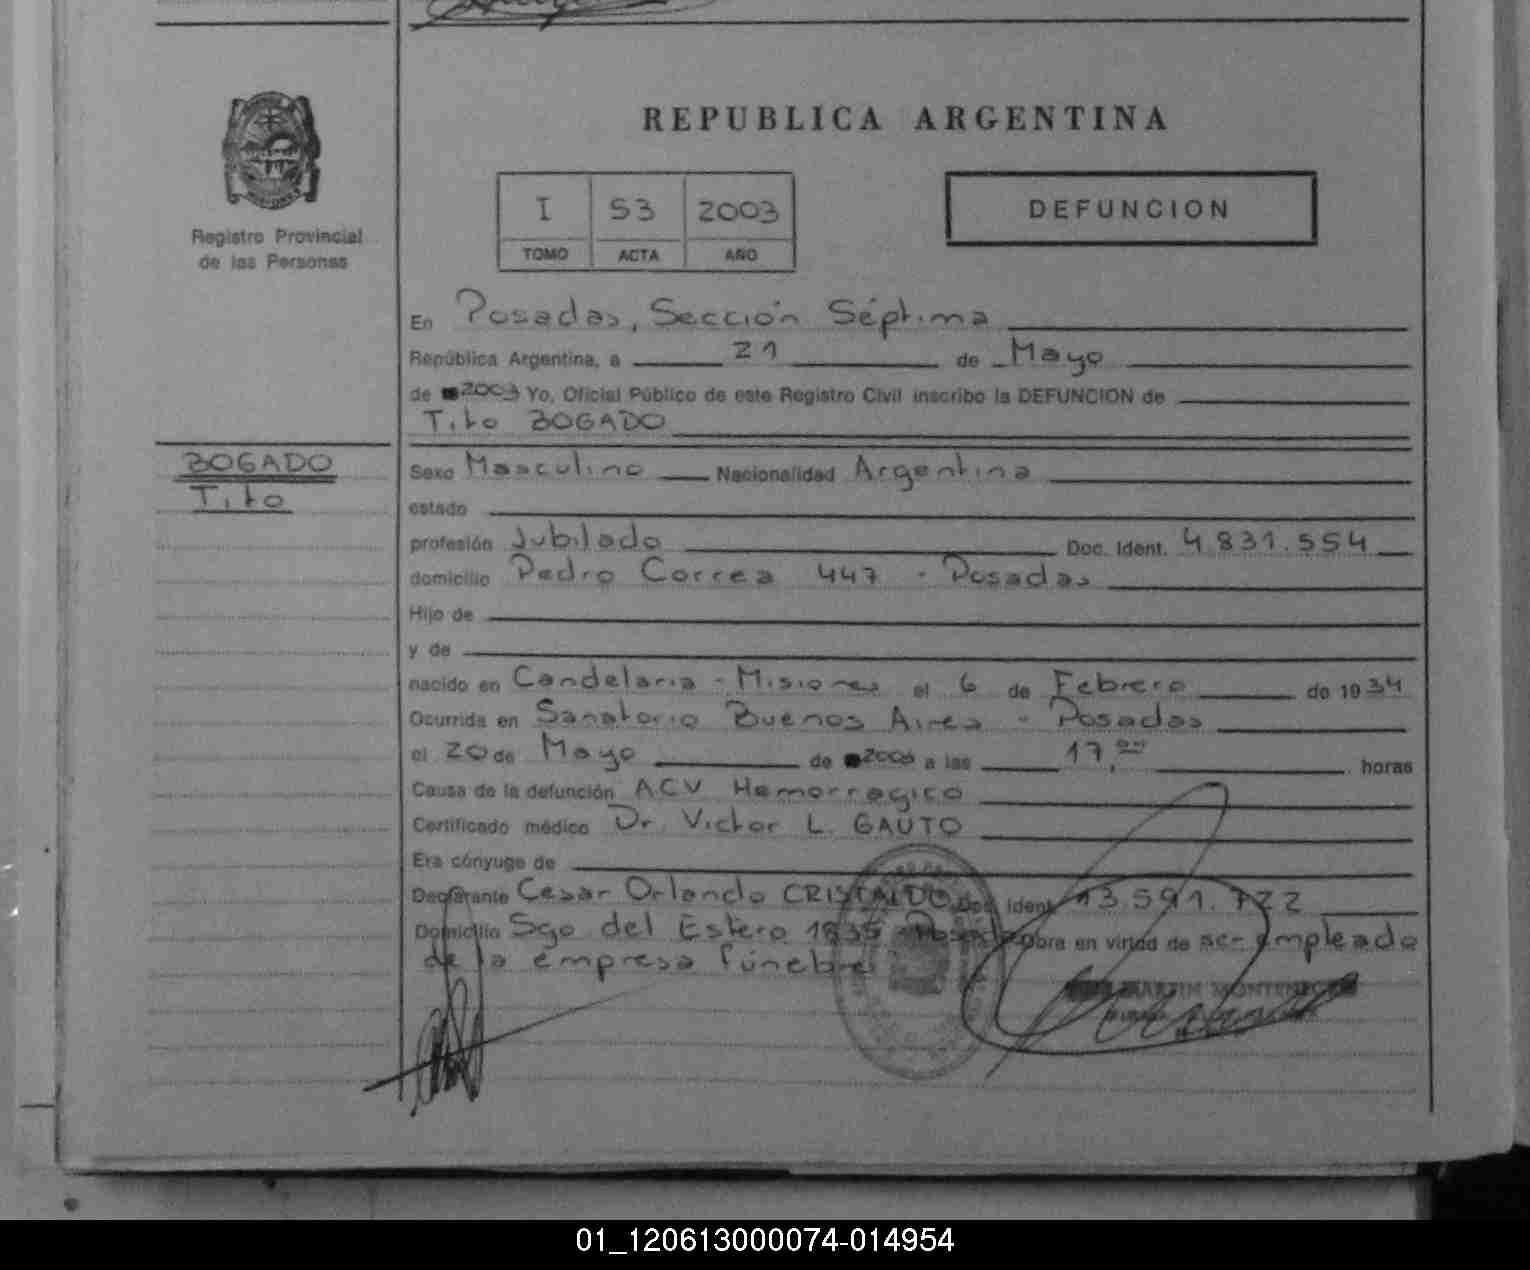 REPUBLICA ARGENTINA
Registro Provincial
de las Personas
I 53 2003
TOMO ACTA AÑO
DEFUNCION
En Posadas, Sección Séptima
República Argentina, a 21 de Mayo
de 2003 Yo, Oficial Público de este Registro Civil inscribo la DEFUNCION de
Tito BOGADO
BOGADO
Tito
Sexo Masculino Nacionalidad Argentina
estado
profesión Jubilado Doc. Ident. 4.831.554
domicilio Pedro Correa 447 - Posadas
Hijo de
y de
nacido en Candelaria - Misiones el 6 de Febrero de 1934
Ocurrida en Sanatorio Buenos Aires - Posadas
el 20 de Mayo de 2003 a las 17,00 horas
Causa de la defunción ACV Hemorragico
Certificado médico Dr. Victor L. GAUTO
Era cónyuge de
Declarante Cesar Orlando CRISTALDO Doc. Ident. 13.591.722
Domicilio Sgo del Estero 1835 - Posadas Obra en virtud de ser empleado
de la empresa fúnebre
MARTIN
01_120613000074-014954